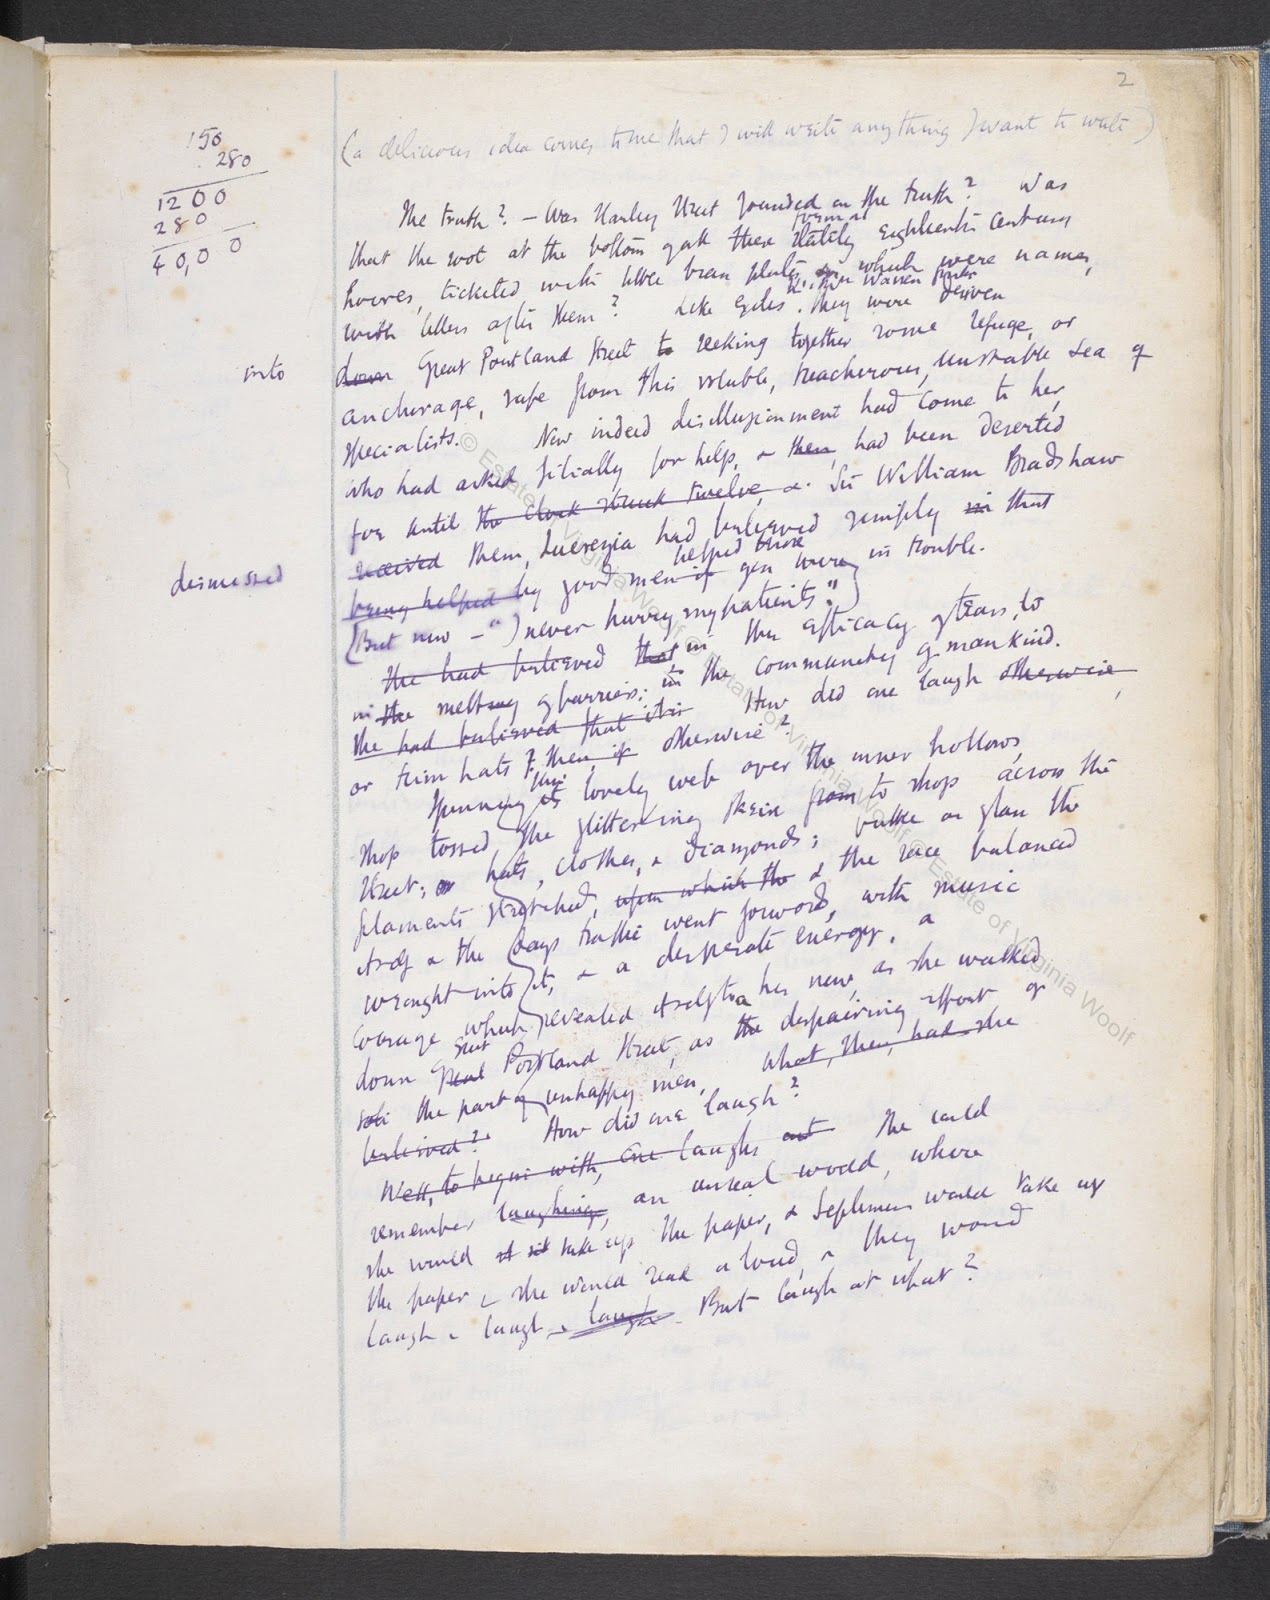 2
150
280
1200
280
40,00
(a delicious idea comes to me that I will write anything I want to write)
The truth? – Was Harley Street founded on the truth? Was
formal
that the root at the bottom of all these stately eighteenth century
houses, ticketed with little brass plates, on which were names,
with letters after them? Like exiles they were driven
into
down Great Portland Street to seeking together some refuge, or
anchorage, safe from this voluble, treacherous, unstable sea of
specialists. Now indeed disillusionment had come to her,
who had asked filially for help, & then, had been deserted
for until the clock struck twelve, & Sir William Bradshaw
dismissed
received them, Lucrezia had believed simply in that
helped those
being helped by good men if you were in trouble.
(But now – "I never hurry my patients".)
She had believed that in the efficacy of tears, to
in the melting of barriers: in the community of mankind.
She had believed that it is How did one laugh otherwise,
or trim hats? then, if otherwise?
this
Spinning its lovely web over the inner hollows,
shop tossed the glittering skein from to shop across the
Street; or hats, clothes, & diamonds; the
filaments stretched, upon which the & the race balanced
itself & the days traffic went forward, with music
wrought into it, & a desperate energy, a
courage which revealed itself to her now, as she walked
Great
down Great Portland Street, as the a despairing effort of
the part of unhappy men. What, then, had she
believed? How did one laugh?
Well, to begin with, one laughs at She could
remember laughing, an unreal world, where
she would take up the paper, & Septimus would take up
the paper & she would read aloud, & they would
laugh & laugh & laugh. But laugh at what?
© Estate of Virginia Woolf © Estate of Virginia Woolf © Estate of Virginia Woolf